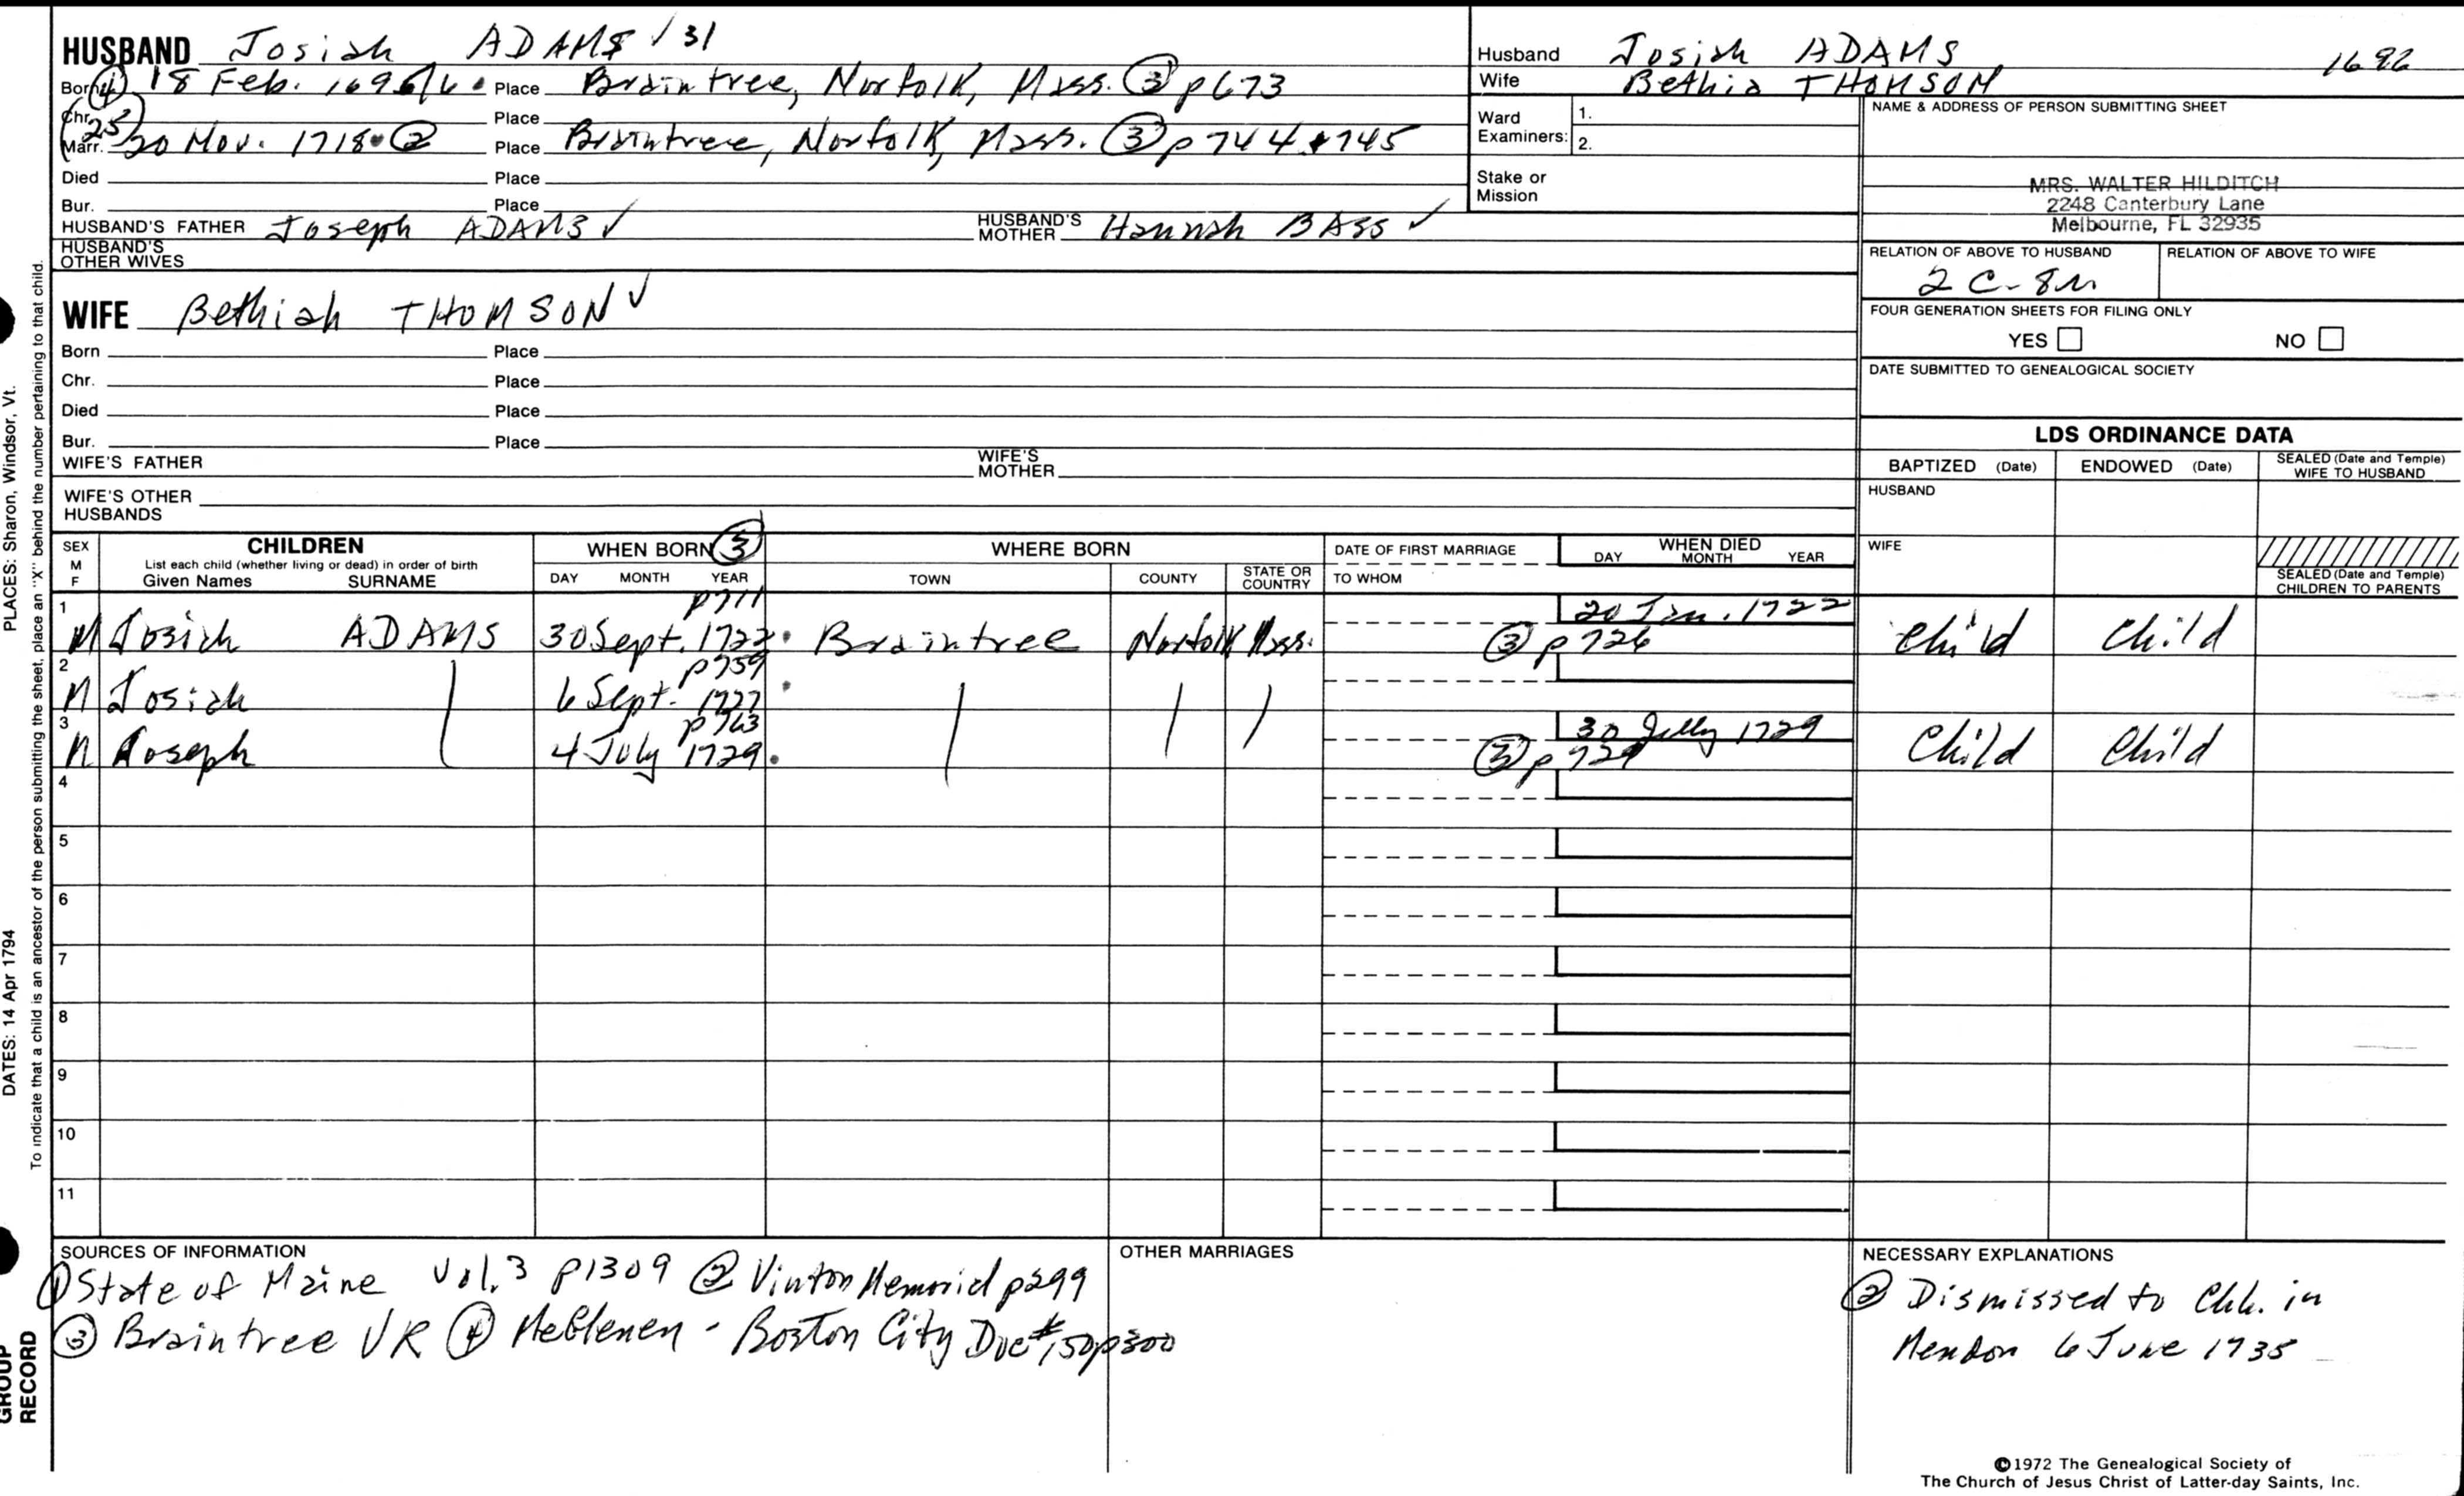 HUSBAND Josiah ADAMS √ 31
Born ④ 18 Feb. 1695/6 Place Braintree, Norfolk, Mass. ③ p673
Chr. Place
(25) Marr. 30 Nov. 1718 ② Place Braintree, Norfolk, Mass. ③ p 744 + 745
Died Place
Bur. Place
HUSBAND'S FATHER Joseph ADAMS √ HUSBAND'S MOTHER Hannah BASS √
HUSBAND'S OTHER WIVES
WIFE Bethiah THOMSON √
Born Place
Chr. Place
Died Place
Bur. Place
WIFE'S FATHER WIFE'S MOTHER
WIFE'S OTHER HUSBANDS
Husband Josiah ADAMS 1696
Wife Bethia THOMSON
Ward Examiners: 1.
2.
Stake or Mission
NAME & ADDRESS OF PERSON SUBMITTING SHEET
MRS. WALTER HILDITCH
2248 Canterbury Lane
Melbourne, FL 32935
RELATION OF ABOVE TO HUSBAND RELATION OF ABOVE TO WIFE
2 C-8
FOUR GENERATION SHEETS FOR FILING ONLY
YES NO
DATE SUBMITTED TO GENEALOGICAL SOCIETY
LDS ORDINANCE DATA
BAPTIZED (Date) ENDOWED (Date) SEALED (Date and Temple) WIFE TO HUSBAND
HUSBAND
WIFE
SEALED (Date and Temple) CHILDREN TO PARENTS
SEX M F CHILDREN List each child (whether living or dead) in order of birth Given Names SURNAME
WHEN BORN ③ DAY MONTH YEAR
WHERE BORN TOWN COUNTY STATE OR COUNTRY
DATE OF FIRST MARRIAGE TO WHOM
WHEN DIED DAY MONTH YEAR
p711 20 Jan. 1722
1 M Josiah ADAMS 30 Sept. 1722 Braintree Norfolk Mass. ③ p 726 Child Child
p759
2 M Josiah 6 Sept. 1727
p763 30 July 1729
3 M Joseph 4 July 1729 ③ p Child Child
4
5
6
7
8
9
10
11
SOURCES OF INFORMATION
① State of Maine Vol. 3 p1309 ② Vinton Memorial p299
③ Braintree VR ④ McGlenen - Boston City Doc #150 p300
OTHER MARRIAGES
NECESSARY EXPLANATIONS
② Dismissed to Chh. in
Mendon 6 June 1735
©1972 The Genealogical Society of
The Church of Jesus Christ of Latter-day Saints, Inc.
PLACES: Sharon, Windsor, Vt.
DATES: 14 Apr 1794
To indicate that a child is an ancestor of the person submitting the sheet, place an "X" behind the number pertaining to that child.
GROUP
RECORD